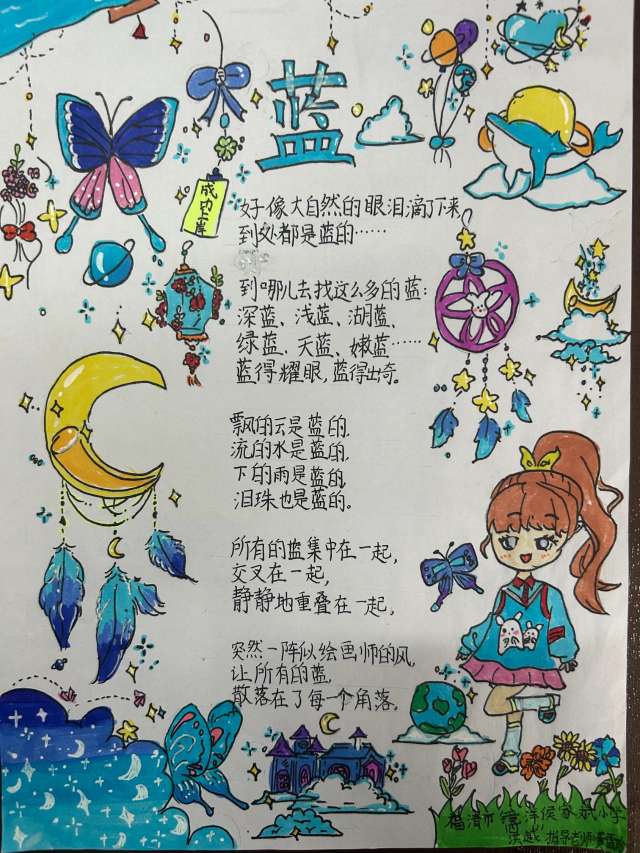 蓝
成功上岸
好像大自然的眼泪滴下来,
到处都是蓝的……
到哪儿去找这么多的蓝:
深蓝、浅蓝、湖蓝、
绿蓝、天蓝、嫩蓝……
蓝得耀眼,蓝得出奇。
飘的云是蓝的,
流的水是蓝的,
下的雨是蓝的,
泪珠也是蓝的。
所有的蓝集中在一起,
交叉在一起,
静静地重叠在一起,
突然一阵似绘画师的风,
让所有的蓝,
散落在了每一个角落。
福清市 洋侯家 小学
越 指导老师